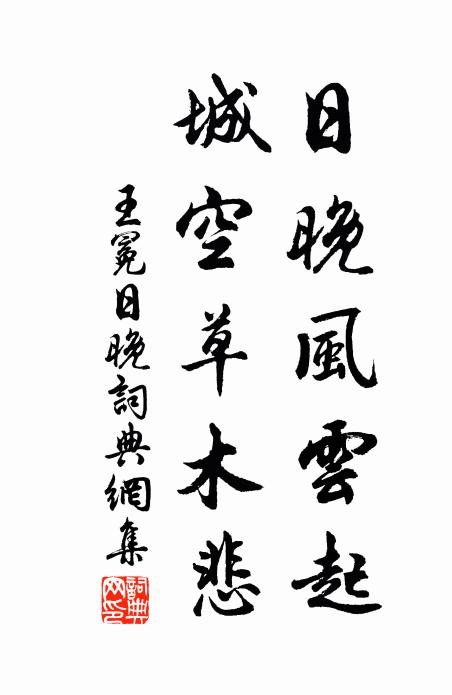 日晚風雲起
城空草木悲
王冕日晚詞典網集
詞典網印